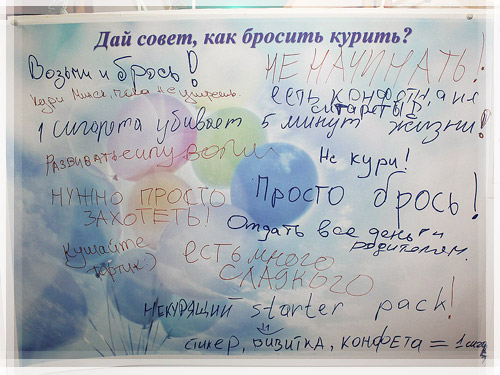 Дай совет, как бросить курить?
Возьми и брось!
НЕ НАЧИНАТЬ!
кури Макс, пока не умрешь.
есть конфеты, а не
сигареты!
1 сигарета убивает 5 минут жизни!
РАЗВИВАТЬ силу воли
Не кури!
НУЖНО ПРОСТО
ЗАХОТЕТЬ!
Просто брось!
Отдать все деньги
родителям.
Кушайте
тортик:)
ЕСТЬ МНОГО
СЛАДКОГО
НЕКУРЯЩИЙ starter pack!
стикер, визитка, конфета = 1